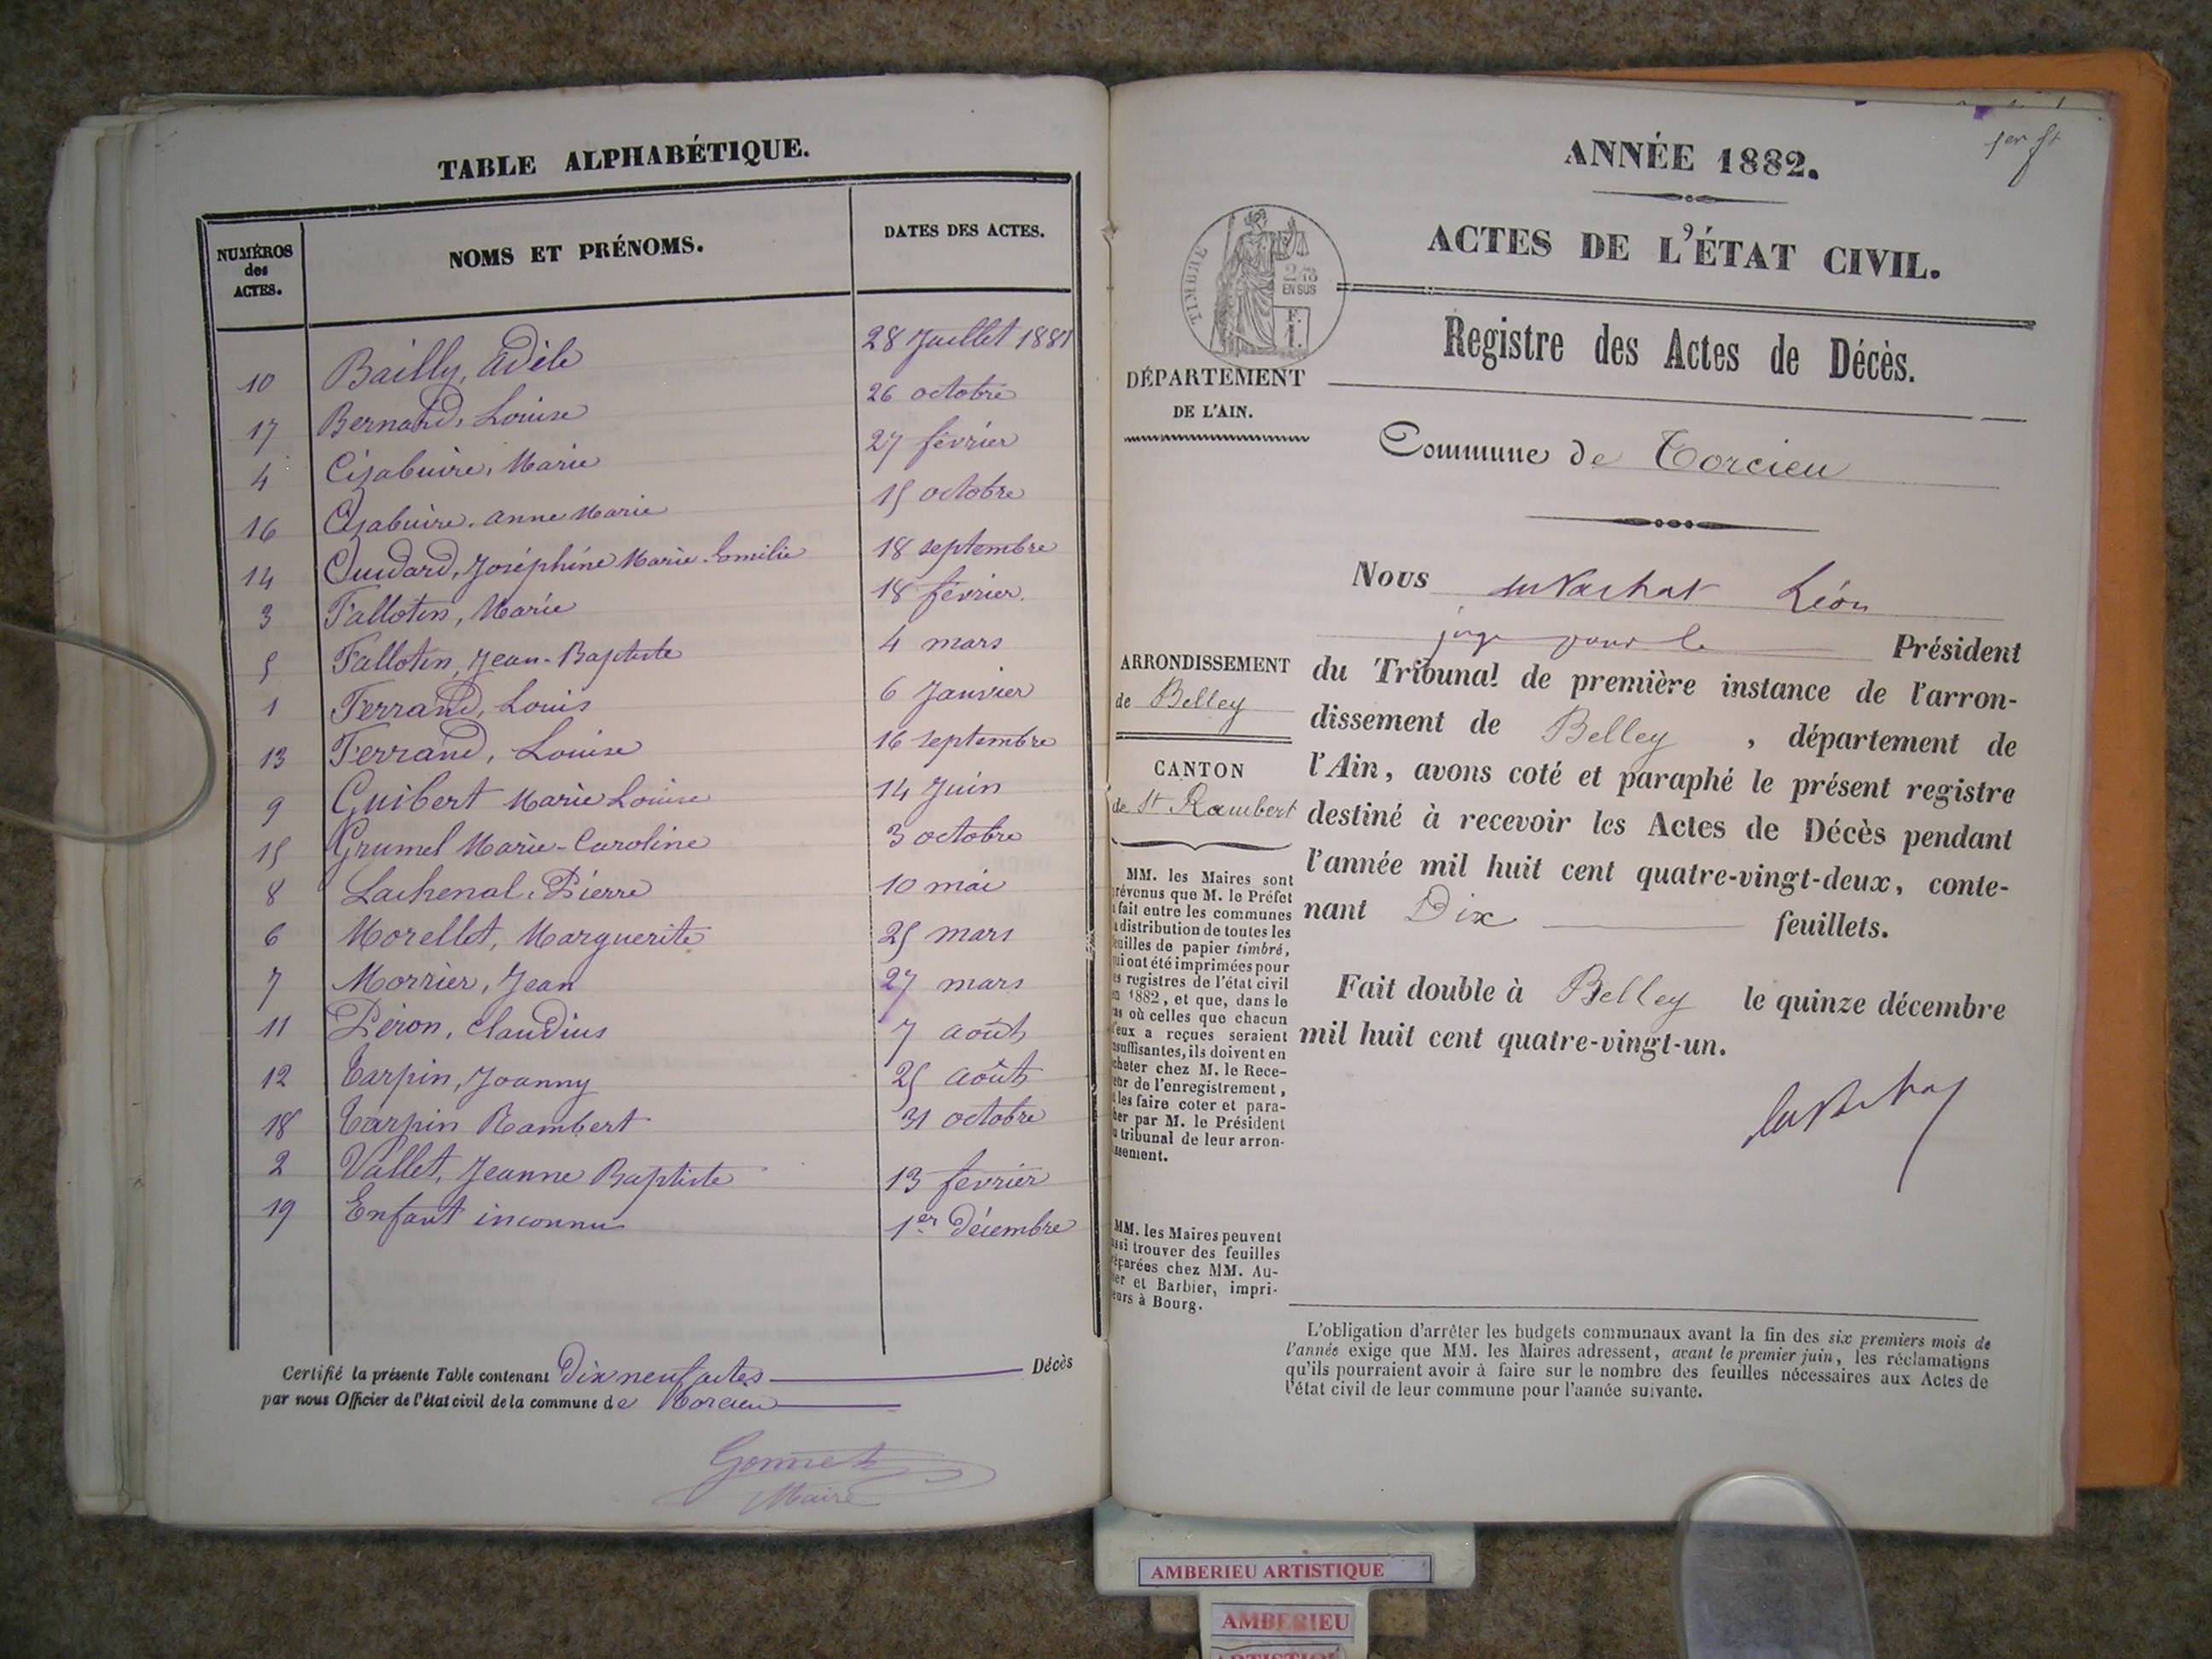 TABLE ALPHABÉTIQUE.
NUMÉROS des ACTES. NOMS ET PRÉNOMS. DATES DES ACTES.
10 Bailly, Adèle 28 Juillet 1881
17 Bernard, Louise 26 octobre
4 Cizabuire, Marie 27 février
16 Cizabuire, anne Marie 15 octobre
14 Joséphine Marie Emilie 18 septembre
3 Fallotin, Marie 18 février.
5 Fallotin, Jean-Baptiste 4 mars
1 Ferrand, Louis 6 Janvier
13 Ferrand, Louise 16 septembre
9 Guibert Marie Louise 14 Juin
15 Grumel Marie-Caroline 3 octobre
8 Lachenal, Pierre 10 mai
6 Morellet, Marguerite 25 mars
7 Morrier, Jean 27 mars
11 Péron, Claudius 7 août
12 Tarpin, Joanny 25 août
18 Tarpin Rambert 31 octobre
2 Vallet, Jeanne Baptiste 13 février
19 Enfant inconnu 1er Décembre
Certifié la présente Table contenant Dix neuf actes Décès
par nous Officier de l'état civil de la commune de Torcieu
Gonnet
Maire
1er ft
ANNÉE 1882.
ACTES DE L'ÉTAT CIVIL.
TIMBRE
2/10 EN SUS
Registre des Actes de Décès.
DÉPARTEMENT
DE L'AIN.
Commune de Torcieu
Nous Léon
juge pour le Président
ARRONDISSEMENT
de Belley
du Tribunal de première instance de l'arron-
dissement de Belley, département de
CANTON
de St Rambert
l'Ain, avons coté et paraphé le présent registre
destiné à recevoir les Actes de Décès pendant
l'année mil huit cent quatre-vingt-deux, conte-
nant Dix feuillets.
Fait double à Belley le quinze décembre
mil huit cent quatre-vingt-un.
MM. les Maires sont
prévenus que M. le Préfet
a fait entre les communes
la distribution de toutes les
feuilles de papier timbré,
qui ont été imprimées pour
les registres de l'état civil
en 1882, et que, dans le
cas où celles que chacun
d'eux a reçues seraient
insuffisantes, ils doivent en
acheter chez M. le Rece-
veur de l'enregistrement,
et les faire coter et para-
pher par M. le Président
du tribunal de leur arron-
dissement.
MM. les Maires peuvent
aussi trouver des feuilles
préparées chez MM. Au-
et Barbier, impri-
meurs à Bourg.
L'obligation d'arrêter les budgets communaux avant la fin des six premiers mois de
l'année exige que MM. les Maires adressent, avant le premier juin, les réclamations
qu'ils pourraient avoir à faire sur le nombre des feuilles nécessaires aux Actes de
l'état civil de leur commune pour l'année suivante.
AMBERIEU ARTISTIQUE
AMBERIEU
ARTISTIQUE